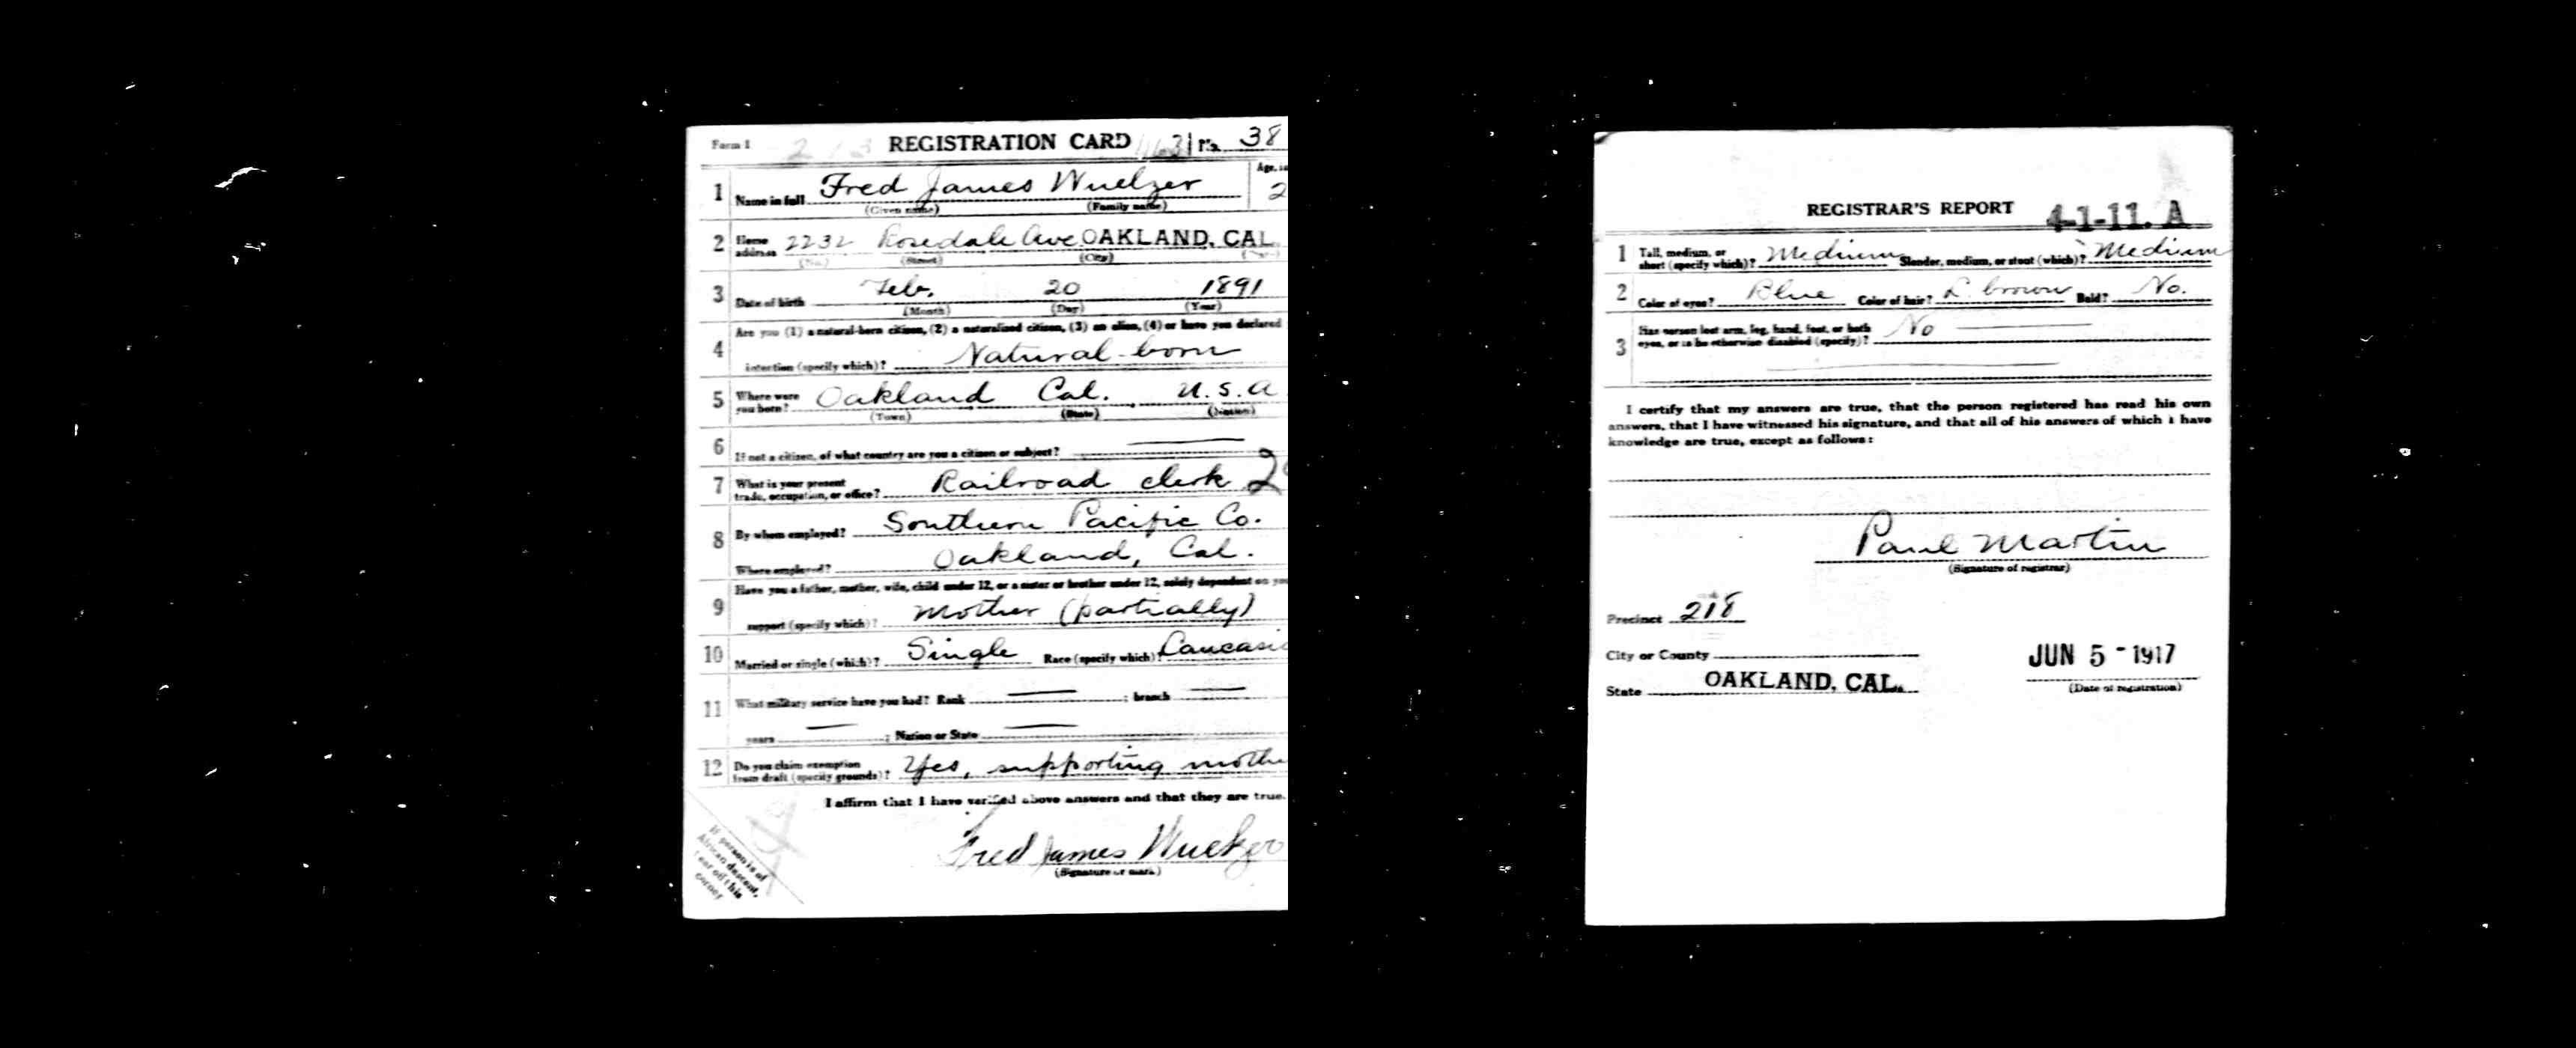 Form 1 REGISTRATION CARD No. 38
1 Name in full Fred James Wuelzer Age, in
(Given name) (Family name) 2
2 Home address 2232 Rosedale Ave. OAKLAND, CAL.
(No.) (Street) (City)
3 Date of birth Feb. 20 1891
(Month) (Day) (Year)
Are you (1) a natural-born citizen, (2) a naturalized citizen, (3) an alien, (4) or have you declared
4 intention (specify which)? Natural-born
5 Where were you born? Oakland Cal. U.S.A
(Town) (State) (Nation)
6 If not a citizen, of what country are you a citizen or subject?
7 What is your present trade, occupation, or office? Railroad clerk
8 By whom employed? Southern Pacific Co.
Where employed? Oakland, Cal.
Have you a father, mother, wife, child under 12, or a sister or brother under 12, solely dependent on you
9 support (specify which)? Mother (partially)
10 Married or single (which)? Single Race (specify which)? Caucasia
11 What military service have you had? Rank ; branch
years ; Nation or State
12 Do you claim exemption from draft (specify grounds)? Yes, supporting mothe
I affirm that I have verified above answers and that they are true.
Fred James Wuelzer
(Signature or mark)
If person is of
African descent,
tear off this
corner
REGISTRAR'S REPORT 4-1-11. A
1 Tall, medium, or short (specify which)? Medium Slender, medium, or stout (which)? Medium
2 Color of eyes? Blue Color of hair? L. brown Bald? No.
3 Has person lost arm, leg, hand, foot, or both eyes, or is he otherwise disabled (specify)? No
I certify that my answers are true, that the person registered has read his own
answers, that I have witnessed his signature, and that all of his answers of which I have
knowledge are true, except as follows:
Paul Martin
(Signature of registrar)
Precinct 218
City or County
JUN 5 - 1917
State OAKLAND, CAL.
(Date of registration)